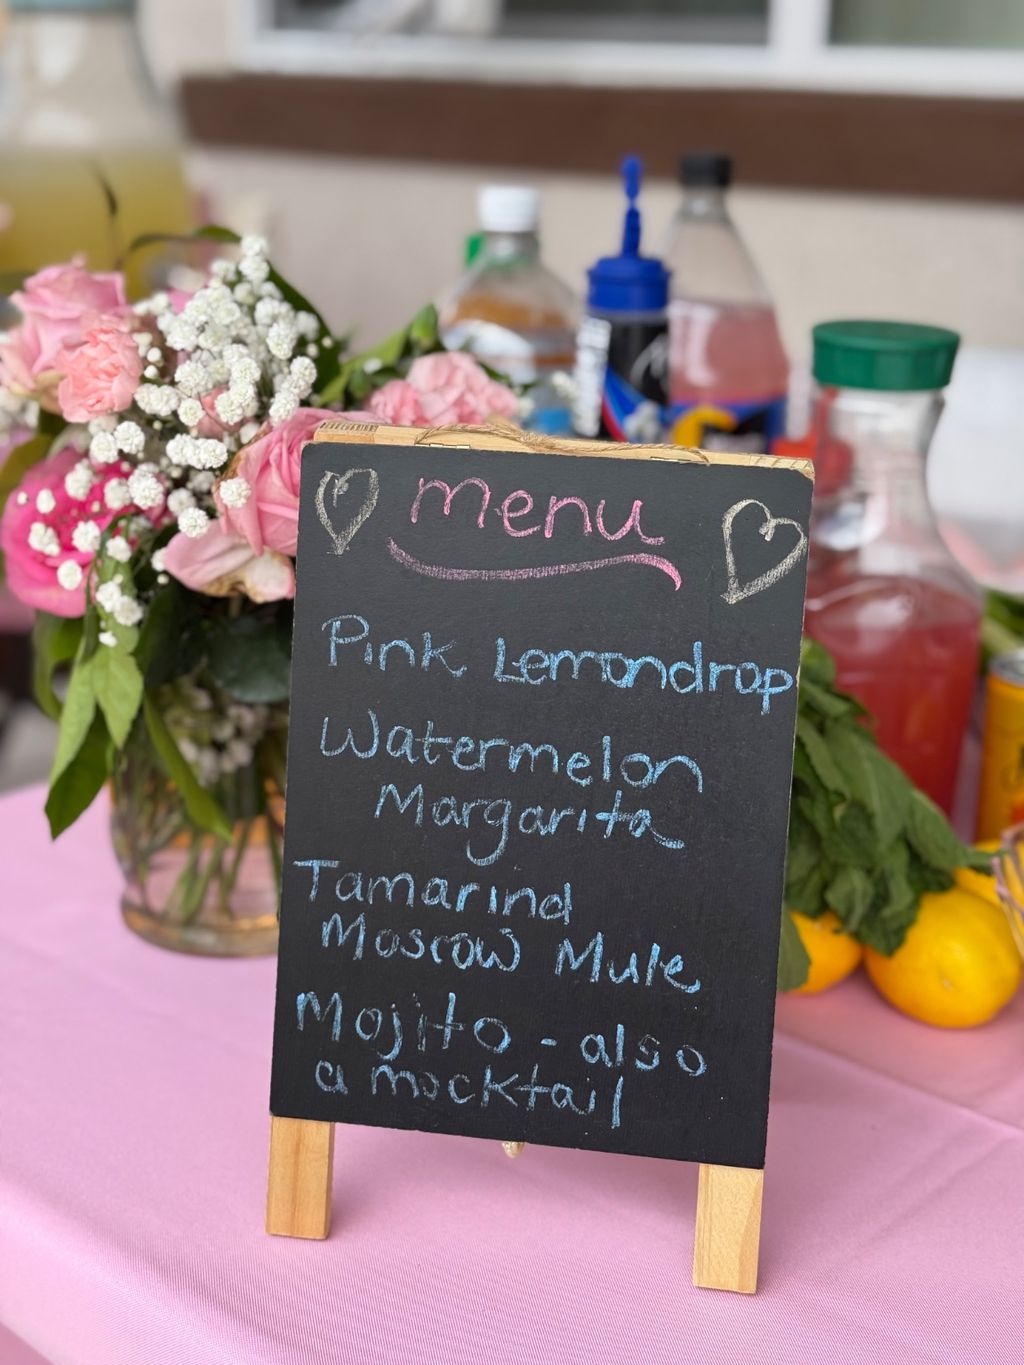 menu
Pink Lemondrop
Watermelon
Margarita
Tamarind
Moscow Mule
Mojito - also
a mocktail